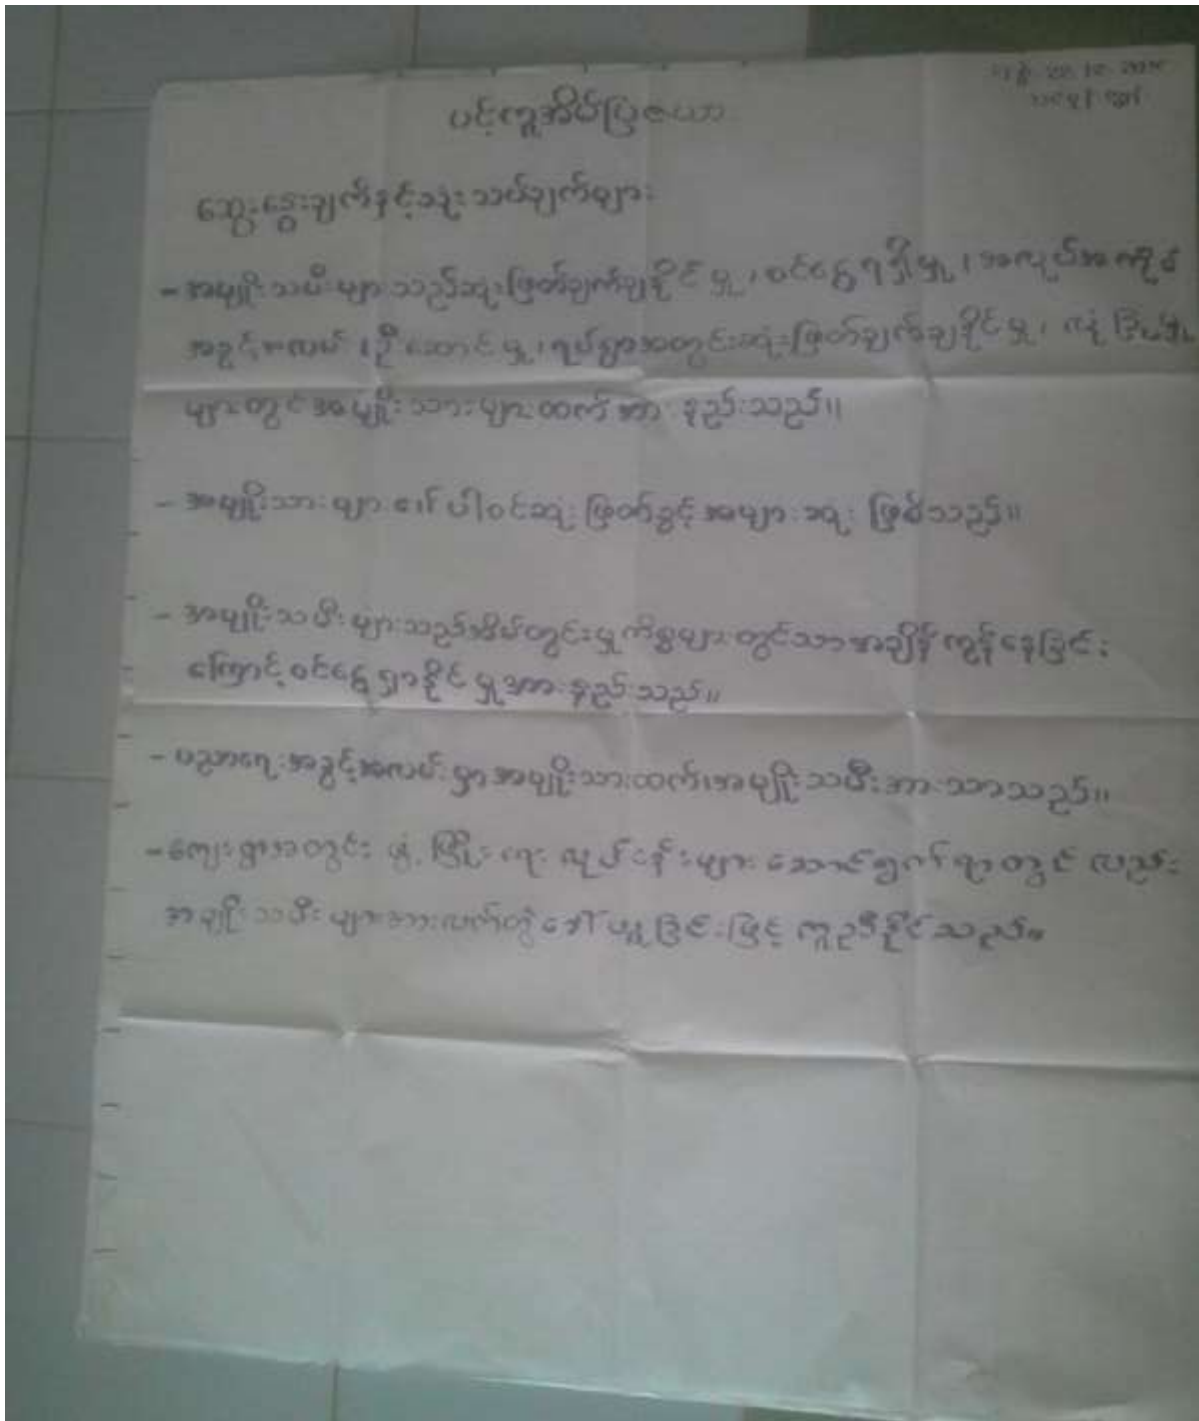 22.12.
ပင့်ကူအိမ်ပြဇယာ
ဆွေးနွေးချက်နှင့်သုံးသပ်ချက်များ
- အမျိုးသမီးများသည်ဆုံးဖြတ်ချက်ချနိုင်မှု၊ ဝင်ငွေရရှိမှု၊ အလုပ်အကိုင်
အခွင့်အလမ်း၊ ဦးဆောင်မှု၊ ရပ်ရွာအတွင်းဆုံးဖြတ်ချက်ချနိုင်မှု၊ လုံခြုံမှု
များတွင်အမျိုးသားများထက်အား နည်းသည်။
- အမျိုးသားများ၏ ပါဝင်ဆုံးဖြတ်ခွင့်အများဆုံး ဖြစ်သည်။
- အမျိုးသမီးများသည်အိမ်တွင်းမှုကိစ္စများတွင်သာအချိန်ကုန်နေခြင်း
ကြောင့်ဝင်ငွေရှာနိုင်မှုအားနည်းသည်။
- ပညာရေးအခွင့်အလမ်းမှာအမျိုးသားထက်အမျိုးသမီးအားသာသည်။
- ကျေးရွာအတွင်း ဖွံ့ဖြိုးရေးလုပ်ငန်းများ ဆောင်ရွက်ရာတွင် လည်း
အမျိုးသမီးများအားလက်တွဲခေါ်ယူခြင်းဖြင့် ကူညီနိုင်သည်။